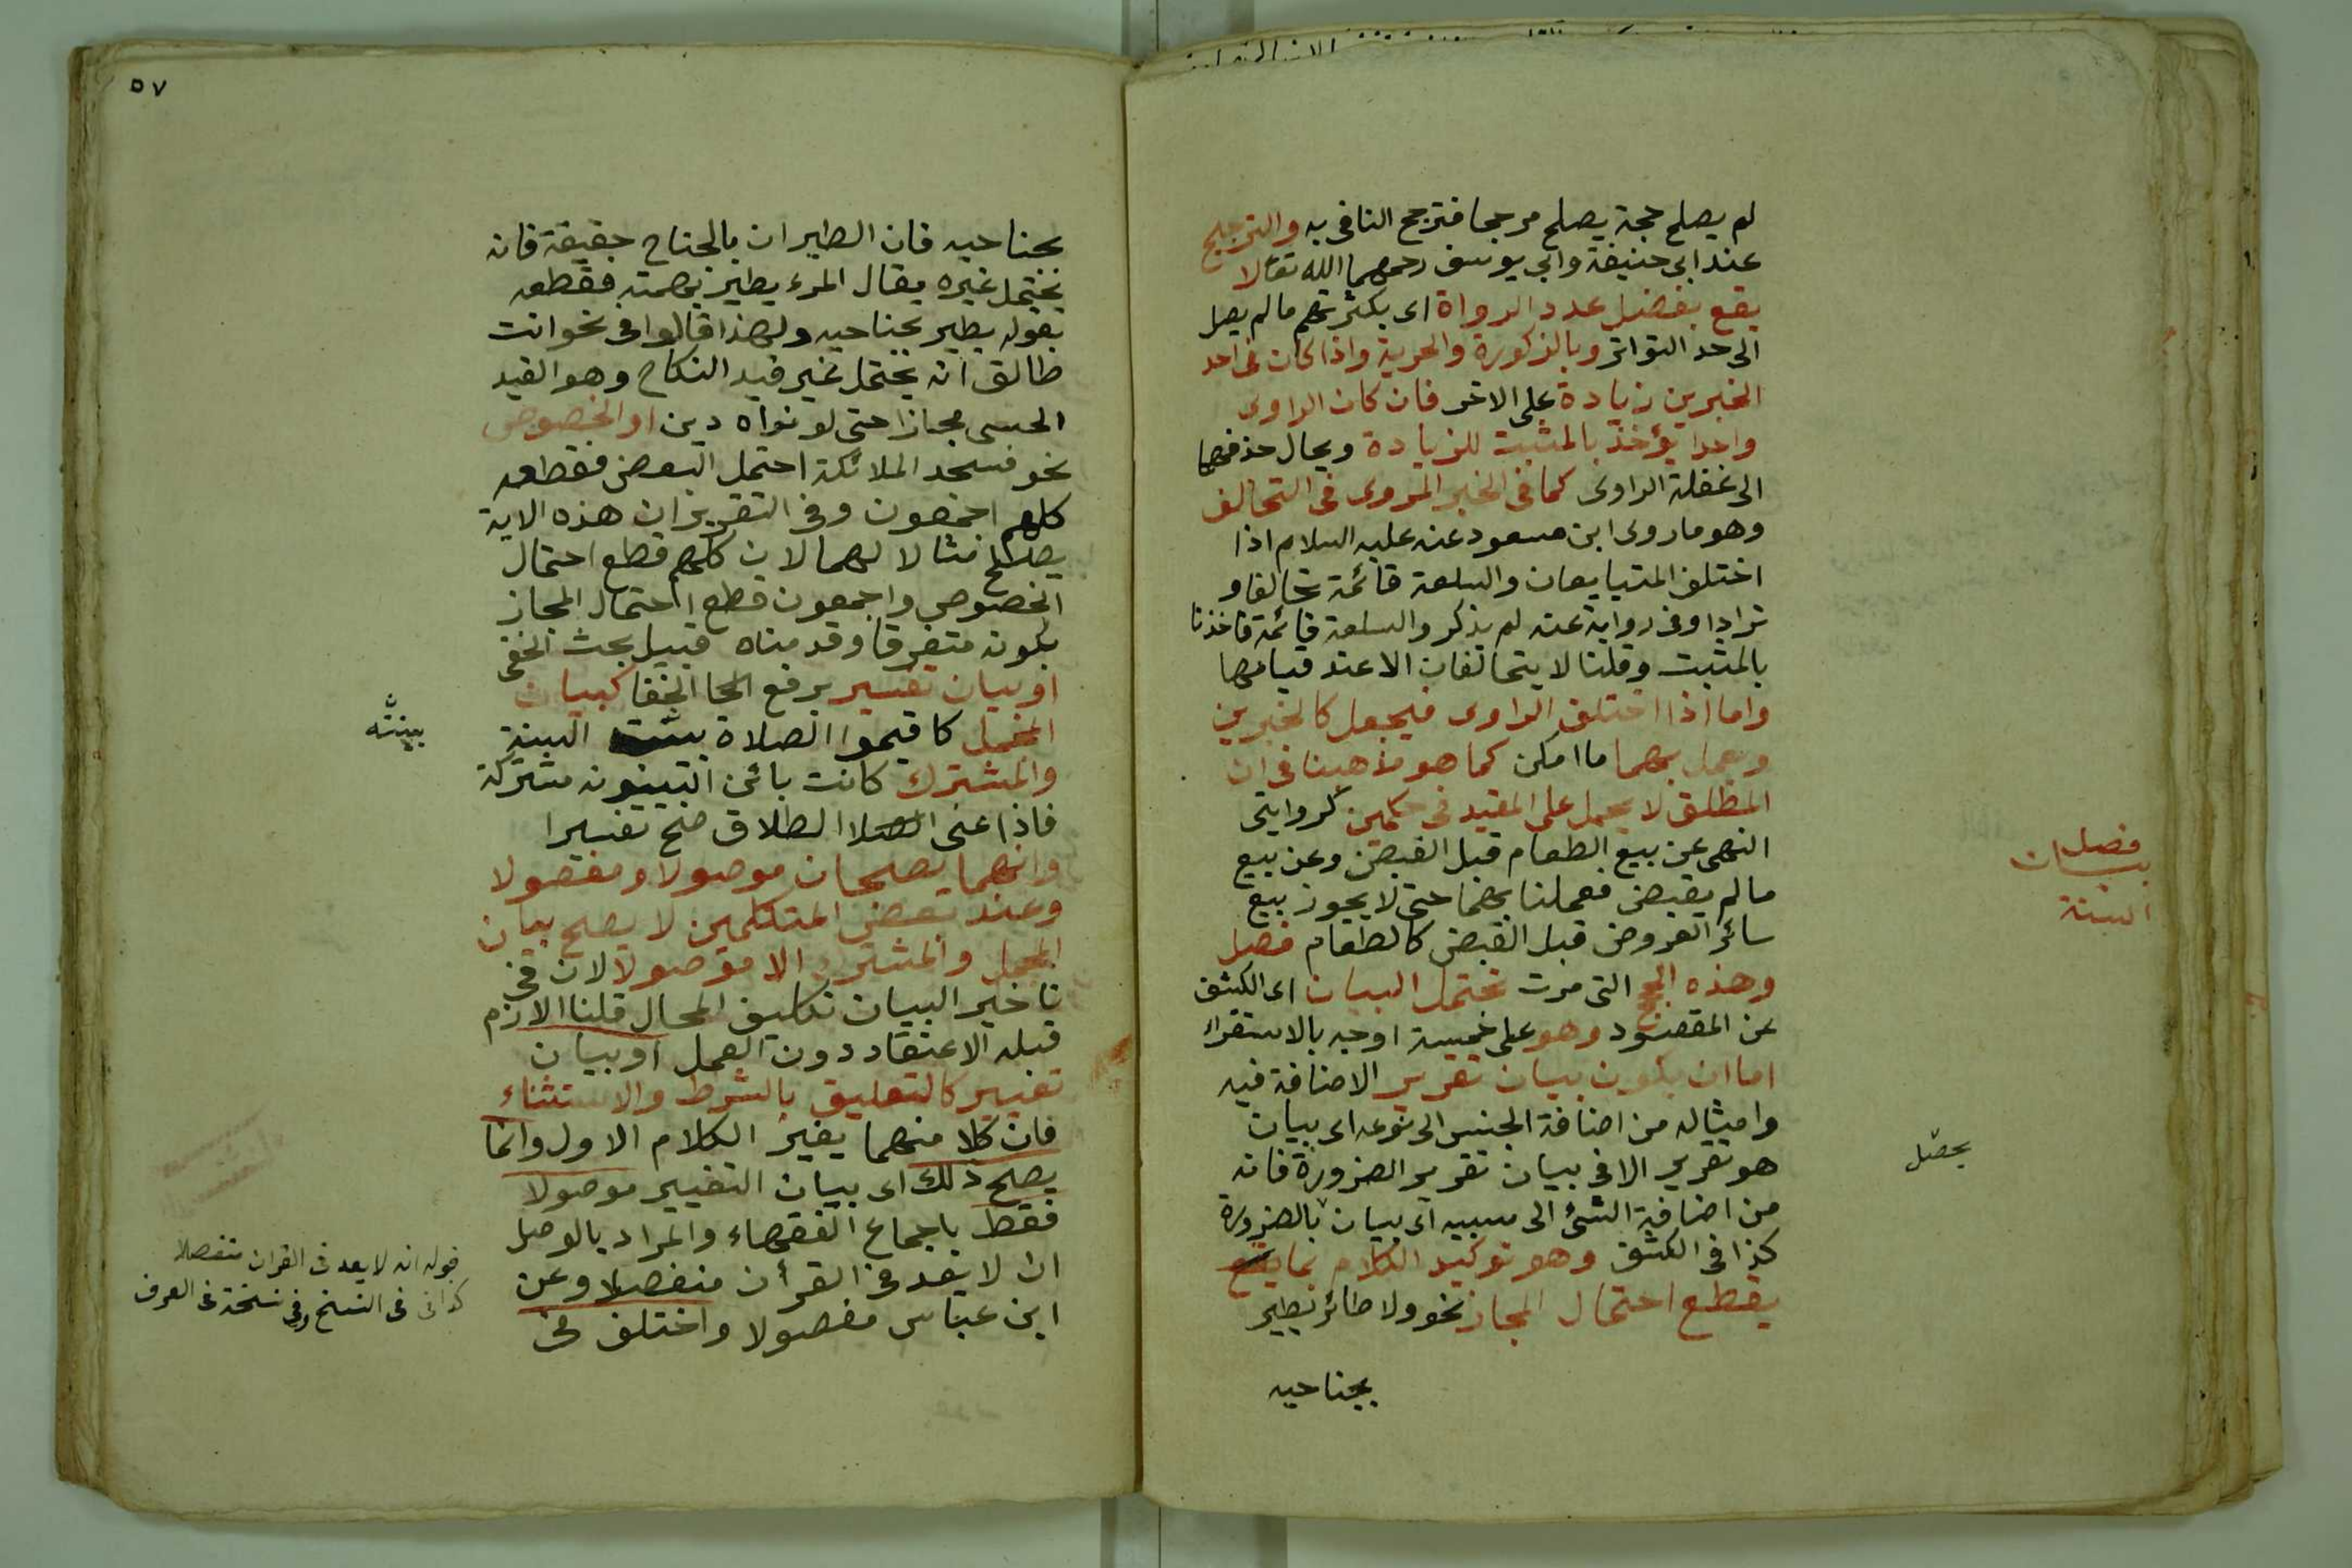 لم يصلح حجة يصلح مرجحا فترجح النافى به والترجيح
عند ابى حنيفة وابى يوسف رحمهما الله تعالا
يقع بفضل عدد الرواة اى بكثرتهم مالم يصل
الى حد التواتر وبالذكورة والحرية واذا كان فى احد
الخبرين زيادة على الاخر فان كان الراوى
واحدا يؤخذ بالمثبت للزيادة ويحال حذفها
الى غفلة الراوى كما فى الخبر المروى فى التحالف
وهو ما روى ابن مسعود عنه عليه السلام اذا
اختلف المتبايعان والسلعة قائمة تحالفا و
ترادا وفى رواية عنه لم يذكر والسلعة قائمة فاخذنا
بالمثبت وقلنا لا يتحالفان الا عند قيامها
واما اذا اختلف الراوى فيجعل كالخبرين
ويعمل بهما ما امكن كما هو مذهبنا فى ان
المطلق لا يحمل على المقيد فى حكمين كروايتى
النهى عن بيع الطعام قبل القبض وعن بيع
مالم يقبض فعملنا بهما حتى لا يجوز بيع
سائر العروض قبل القبض كالطعام فصل
وهذه الحجج التى مرت تحتمل البيان اى الكشف
عن المقصود وهو على خمسة اوجه بالاستقراء
اما ان يكون بيان تقرير الاضافة فيه
وامثاله من اضافة الجنس الى نوعه اى بيان
هو تقرير الا فى بيان تقرير الضرورة فانه
من اضافة الشئ الى سببه اى بيان بالضرورة
كذا فى الكشف وهو توكيد الكلام بما
يقطع احتمال المجاز نحو ولا طائر يطير
بجناحيه
فصل
بيان
السنة
يحصل
٥٧
بجناحيه فان الطيران بالجناح حقيقة فانه
يحتمل غيره يقال المرء يطير بهمته فقطعه
بقوله يطير بجناحيه ولهذا قالوا فى نحو انت
طالق انه يحتمل غير قيد النكاح وهو القيد
الحسى مجازا حتى لو نواه دين او الخصوص
نحو فسجد الملائكة احتمل البعض فقطعه
كلهم اجمعون وفى التقرير ان هذه الاية
يصلح مثالا لهما لان كلهم قطع احتمال
الخصوص واجمعون قطع احتمال المجاز
بكونه متفرقا وقدمناه قبيل بحث الخفى
او بيان تفسير برفع الخفا كبيان
المجمل كاقيموا الصلاة السنة
والمشترك كانت بائن البينونة مشتركة
فاذا عنى الطلاق صح تفسيرا
وانهما يصلحان موصولا ومفصولا
وعند بعض المتكلمين لا يصلح بيان
المجمل والمشترك الا موصولا لان فى
تاخير البيان تكليف المحال قلنا الازم
قبله الاعتقاد دون العمل او بيان
تغيير كالتعليق بالشرط والاستثناء
فان كلا منهما يغير الكلام الاول وانما
يصلح ذلك اى بيان التغيير موصولا
فقط باجماع الفقهاء والمراد بالوصل
ان لا يعد فى القرأن منفصلا وعن
ابن عباس مفصولا واختلف فى
بينته
قوله انه لا يعد فى القران منفصلا
كذا فى النسخ وفى نسخة فى العرف